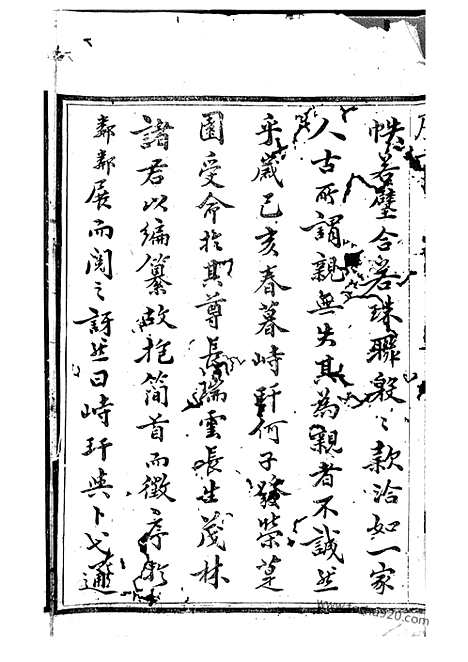 帙若璧合若珠聯殷〻款洽如一家
人古所謂親無失其為親者不誠然
乎歲己亥春暮峙玕何子發榮莫
園受命於其尊長瑞雲張生茂林
諸君以編纂故抱簡首而徵序於
鄰鄰展而閱之訝然曰峙玕與卜弋通